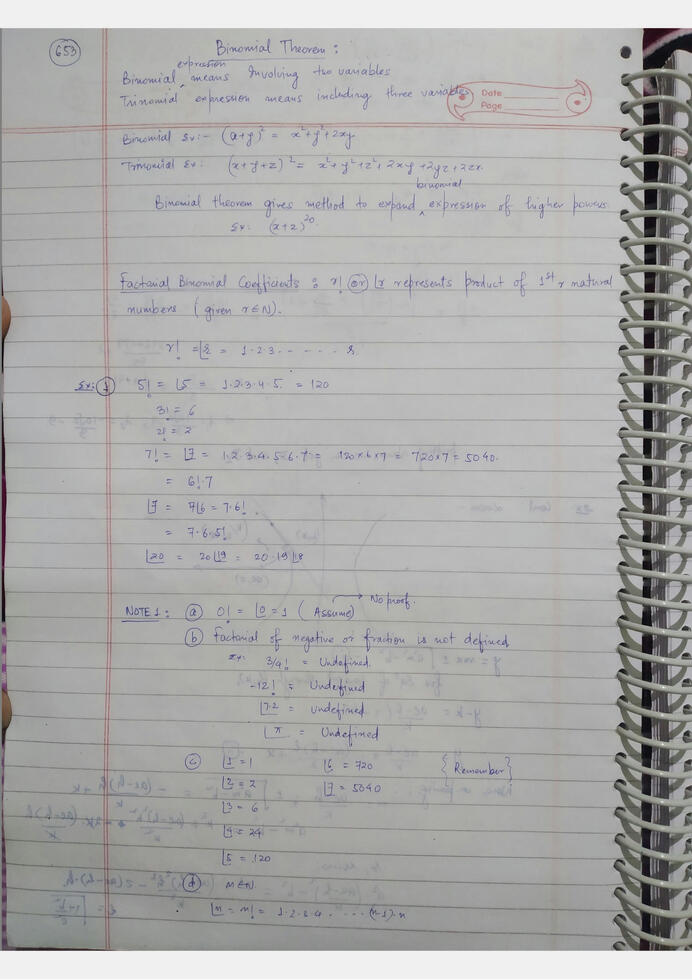 653
Binomial Theorem :
Binomial expression means Involving two variables
Trinomial expression means including three variables
Date
Page
Binomial Ex:- (x+y)² = x²+y²+2xy
Trinomial Ex: (x+y+z)² = x²+y²+z²+2xy+2yz+2zx.
Binomial theorem gives method to expand binomial expression of higher powers.
Ex: (x+z)²⁰
Factorial Binomial Coefficients : r! or |r represents product of 1st r natural
numbers (given r∈N).
r! = |r = 1·2·3 - - - - - - r.
Ex: 1 5! = |5 = 1·2·3·4·5. = 120
3! = 6
2! = 2
7! = |7 = 1·2·3·4·5·6·7 = 120×6×7 = 720×7 = 5040.
= 6!·7
|7 = 7|6 = 7·6!
= 7·6·5!
|20 = 20|19 = 20·19|18
NOTE 1 : (a) 0! = |0 = 1 (Assume) → No proof.
(b) Factorial of negative or fraction is not defined
Ex: 3/4! = Undefined.
-12! = Undefined
|7.2 = undefined
|π = Undefined
(c) |1 = 1 |6 = 720 {Remember}
|2 = 2 |7 = 5040
|3 = 6
|4 = 24
|5 = 120
(d) n∈N.
|n = n! = 1·2·3·4 - - - - (n-1)·n